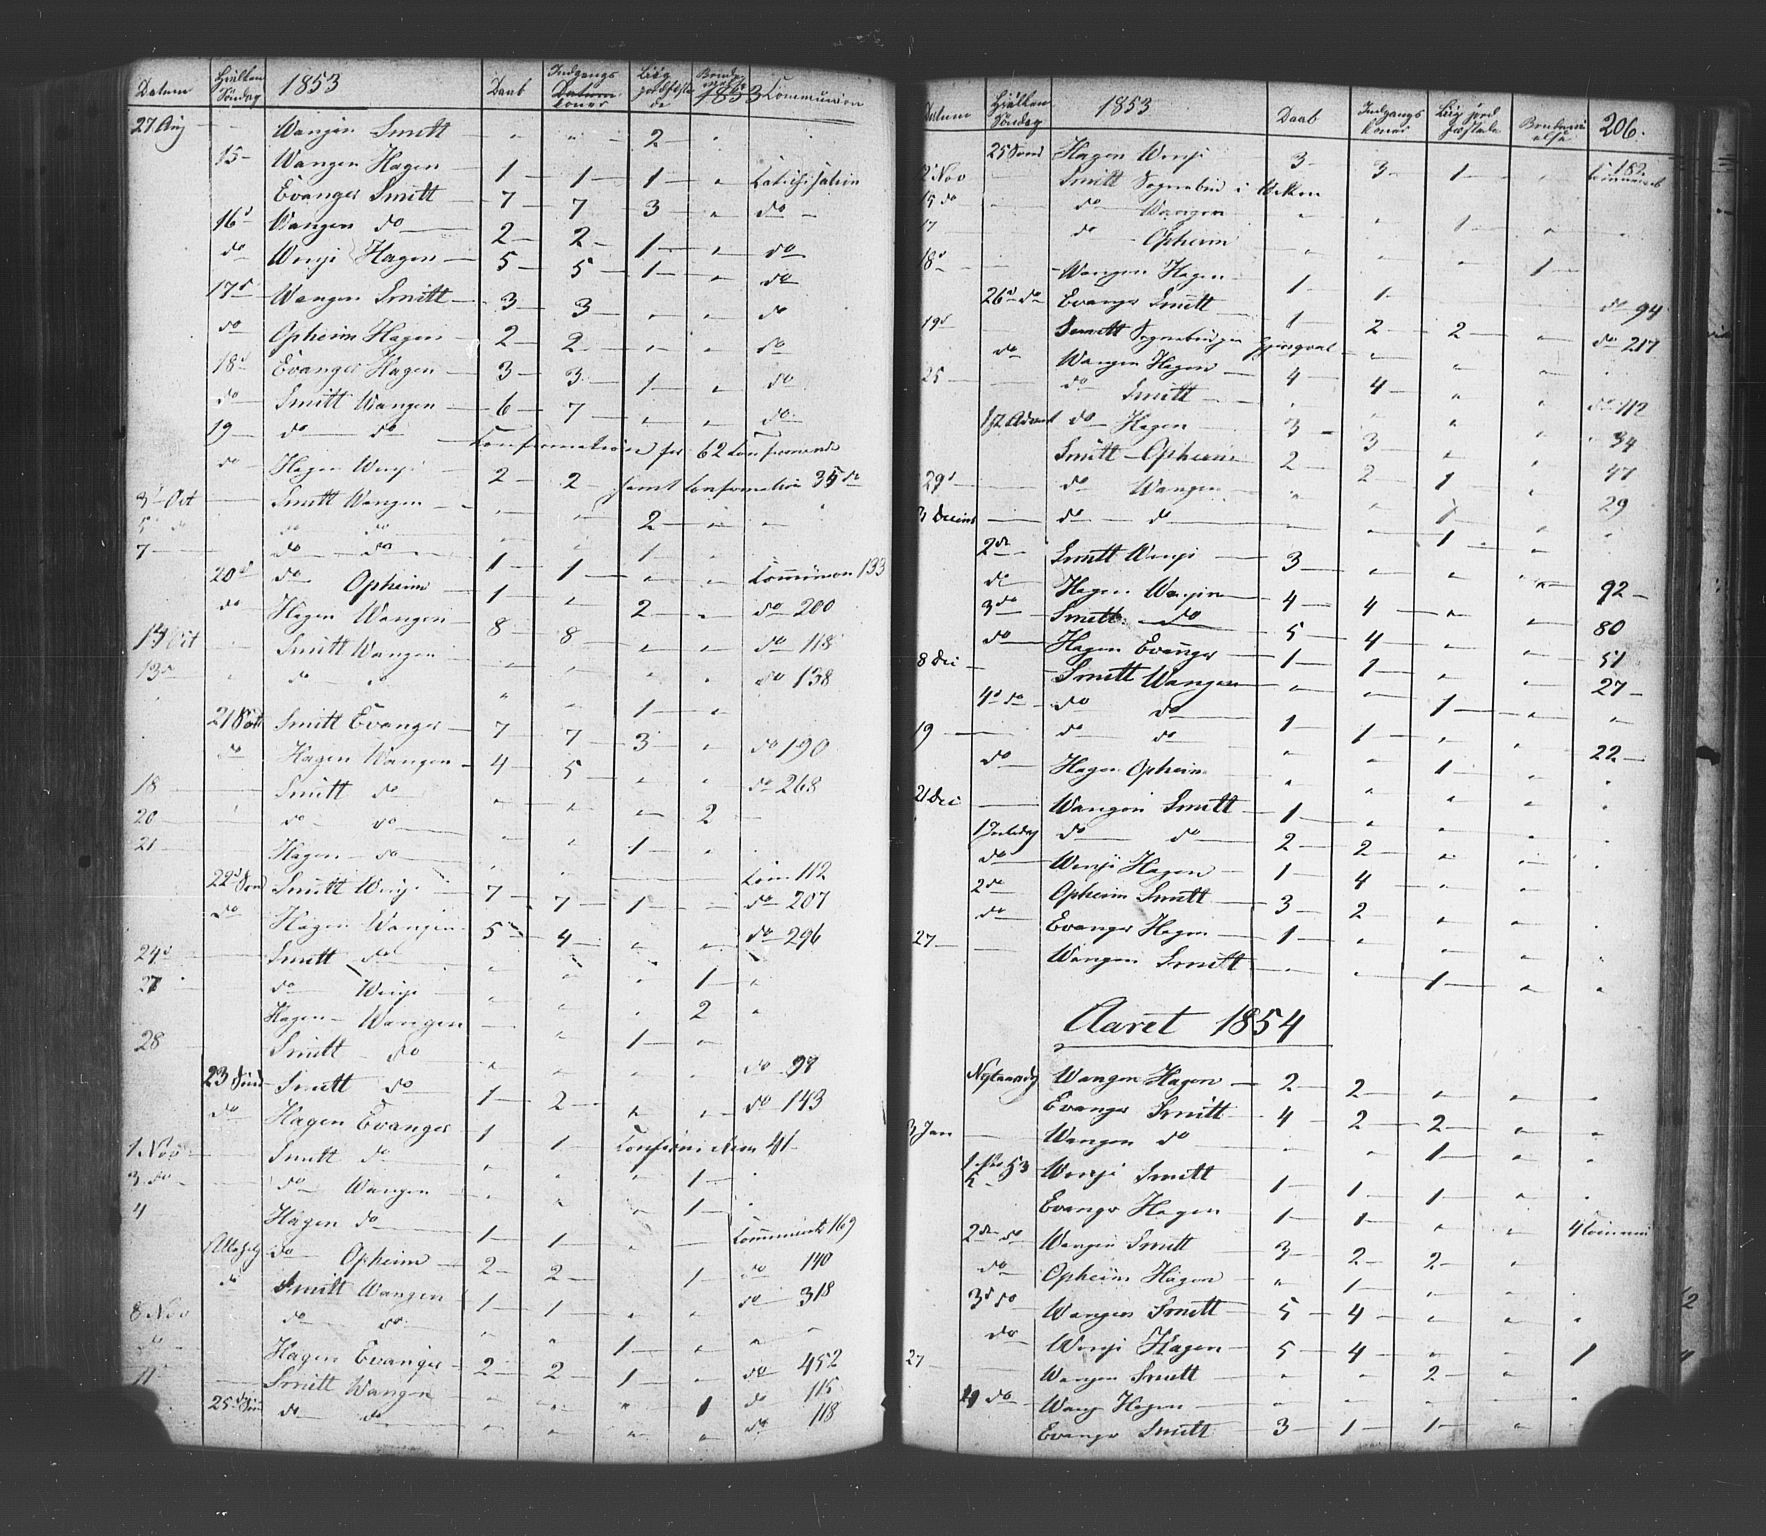 Datum Hvilken Søndag 1853 Daab Indgangs Datum koner Liig jordfæstede 1853 Communion
27 Aug — Wangen Smitt — " " 2 — "
15 — Wangen Hagen — 1 — 1 — 1 — " Catechisation
Evanger Smitt — 7 — 7 — 3 — " do —
16d Wangen do — 2 — 2 — 1 — " do
do Winje Hagen — 5 — 5 — 1 — " do
17d Wangen Smitt — 3 — 3 — " " do
do Opheim Hagen — 2 — 2 — " " do
18d Evanger Hagen — 3 — 3 — 1 — " do
do Smitt Wangen — 6 — 7 — " " do
19 — do do — Confirmation for 62 Confirmande
do Hagen Winje — 2 — 2 — samt Confirmation 35 do
3d Oct — Smitt Wangen — " " 2 — "
5 do do do " " 1 —
7 — do do — 1 — 1 — " " Communion 133
20d do Opheim — 1 — " 2 — " do 200
do Hagen Wangen — 8 — 8 — " " do 118
Oct Smitt Wangen " " " " do 138
13d " do " " " 1 — "
21 Smitt Evanger — 7 — 7 — 3 — " do 190
do Hagen Wangen — 4 — 5 — " " do 268
18 — Smitt do — " " " 2 —
20 do do — " " 1 — "
21 — Hagen — do — " "
22d Sønd Smitt Winje — 7 — 7 — 1 — Com 112
do 207
do Hagen Wangen 5 — 4 — " " do 296
24d Smitt do " " " 1 — "
27 do Winje " " " 2 "
Hagen — Wangen — " 1 — "
28 Smitt — do " " " " do 98
23 Sønd Smitt do — 1 — 2 — " " do 143
do Hagen Evanger — 1 — 1 Confirmation 41
1 Nov — Smitt do — " " " 1 — "
3 do — do Wangen " " " 1 — "
4 Hagen do — 1 — 1 — " Communicants 169
do Opheim — 2 — 2 — 1 — do 140
do Smitt Wangen 1 — 1 — " " do 318
8 Nov do do " " 1 — " "
do Hagen Evanger — 2 — 2 — 1 — " do 452
11 Smitt Wangen " " " 1 do 115
25de Søn do do " " " " do 118
Datum Hvilken Søndag 1853 Daab Indgangs koner Liig jord fæstede 206.
25 Sønd Hagen Winje 3 — 3 — 1 — " 182
2 Nov Smitt Sognebud i
15 do do Wangen " " 1 — "
17 do — Opheim " " " 1 —
18d — Wangen Hagen — 1 — 1 —
26d do Evanger Smitt — 1 — 2 — 2 — " do 94
19d Smitt Sognebud " do 217
do Wangen Hagen — 4 — 4 — " "
25 — do Smitt — " " " " do 112
1st Advent do — Hagen — 3 — 3 — " " 34
Smitt — Opheim 2 — 2 — 1 — " 47
29d — do Wangen " " 1 — " 29
3 Decemb — do — do " 1 — "
2de — Smitt Winje — 3 — " " "
do Hagen Wangen — 4 — 4 — " " 92 —
3do Smitt do 5 — 4 — " " 80
do Hagen Evanger — 1 — 1 — " " 51
8 Dec — Smitt Wangen — " " 1 — " 27 —
4d do do do 1 — 1 — " " "
19 — do do " " 1 — " 22 —
do Hagen Opheim " " " " "
21 Dec — Wangen Smitt — 1 — " " "
1 Juledag do do 2 — 2 — " "
do Winje Hagen — 1 — 4 — " "
2do Opheim Smitt — 3 — 2 — " "
do Evanger Hagen — 1 — " " "
27 — Wangen Smitt — " " 1 — " "
Aaret 1854
Nytaarsdg Wangen Hagen — 2 — 2 — " " "
Evanger Smitt — 4 — 2 — 2 — " "
3 Jan — Wangen do " " 1 — " "
Winje Smitt — 1 — 1 — 1 — " "
Evanger Hagen — 1 — 1 — " " 4
2de do Wangen Smitt 3 — 2 — 2 — "
do Opheim Hagen — " 1 — " "
3d do Wangen Smitt — 5 — 4 — " " "
do Winje Hagen — 5 — 4 — " " 1
27 — Wangen Smitt — " " 2 — "
4 do Wange Hagen — " " " " "
Evanger Smitt — 3 — 1 — 1 — " "